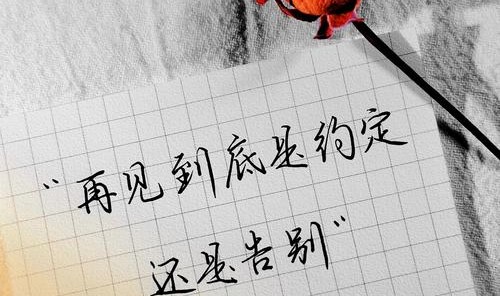 “再见到底是约定
还是告别”